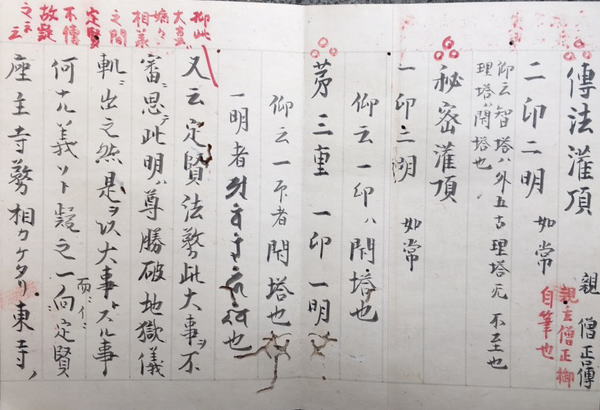 傳法灌頂
親〻僧正傳
親玄僧正御
自筆也
二印二明 如常
仰云智塔ハ外五古理塔无不至也
理塔ハ閇塔也
秘密灌頂
一印二明 如常
仰云一印ハ閇塔也
第三重 一印一明
仰云一印者閇塔也
一明者 也
又云定賢法務此大事ヲ不
審思此明ハ尊勝破地獄儀
軌ニ出之然是ヲ以大事トスル事
何ナル義ソト疑之一向定賢
座主寺務相カケタリ東寺ノ
抑此
大事
嫡々
相義
之間
定賢
不傳
故疑
之云云